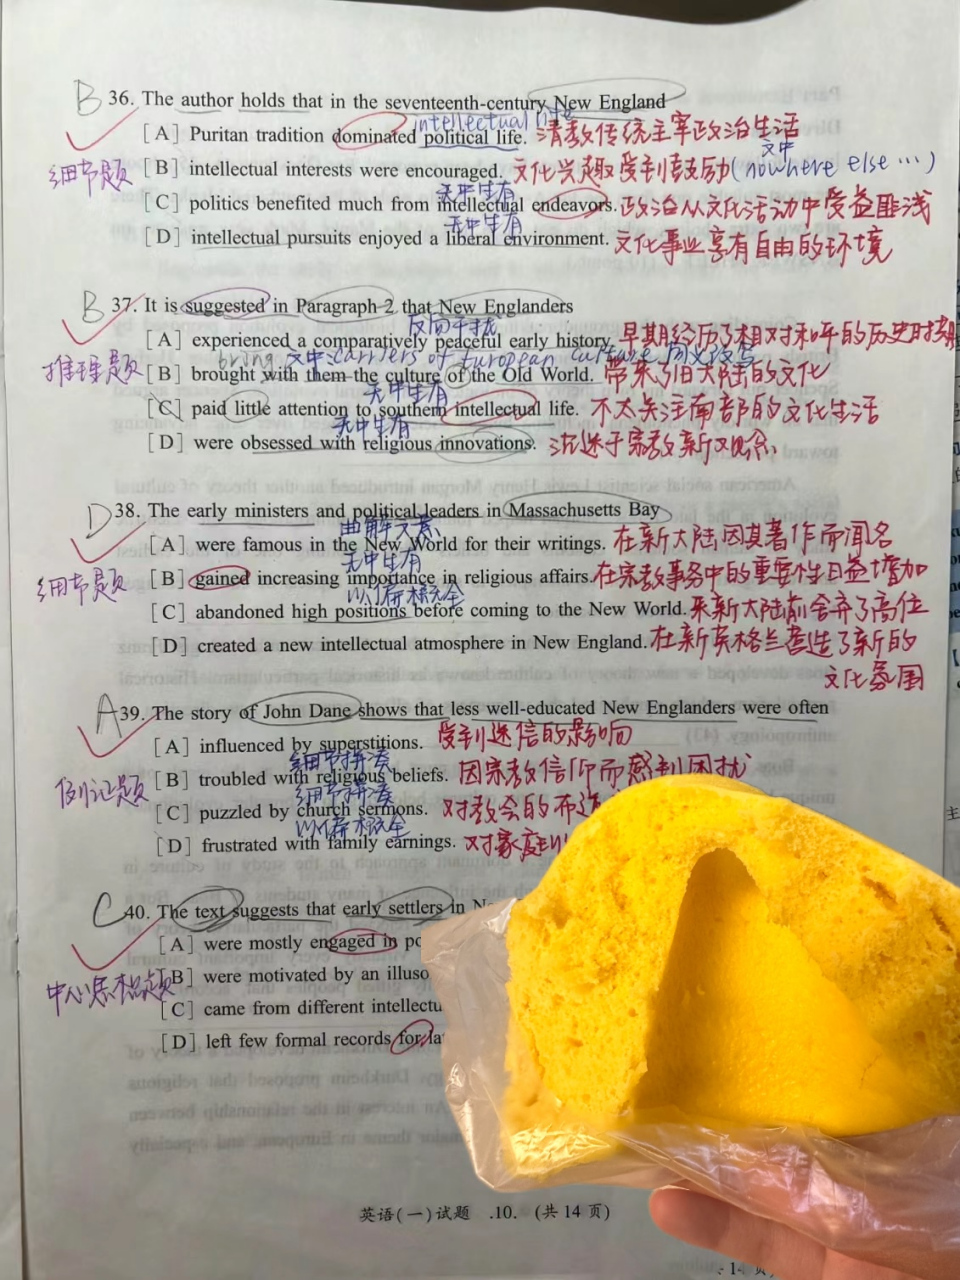 B 36. The author holds that in the seventeenth-century New England
intellectual life
[A] Puritan tradition dominated political life. 清教传统主宰政治生活
文中
细节题 [B] intellectual interests were encouraged. 文化兴趣受到鼓励(nowhere else …)
无中生有
[C] politics benefited much from intellectual endeavors. 政治从文化活动中受益匪浅
无中生有
[D] intellectual pursuits enjoyed a liberal environment. 文化事业享有自由的环境
B 37. It is suggested in Paragraph 2 that New Englanders
反向干扰
[A] experienced a comparatively peaceful early history. 早期经历了相对和平的历史时期
bring 文中 carriers of European culture 同义改写
推理题 [B] brought with them the culture of the Old World. 带来了旧大陆的文化
无中生有
[C] paid little attention to southern intellectual life. 不太关注南部的文化生活
无中生有
[D] were obsessed with religious innovations. 沉迷于宗教新观念
D 38. The early ministers and political leaders in Massachusetts Bay
曲解文意
[A] were famous in the New World for their writings. 在新大陆因其著作而闻名
无中生有
细节题 [B] gained increasing importance in religious affairs. 在宗教事务中的重要性日益增加
以偏概全
[C] abandoned high positions before coming to the New World. 来新大陆前舍弃了高位
[D] created a new intellectual atmosphere in New England. 在新英格兰营造了新的
文化氛围
A 39. The story of John Dane shows that less well-educated New Englanders were often
[A] influenced by superstitions. 受到迷信的影响
细节拼凑
例证题 [B] troubled with religious beliefs. 因宗教信仰而感到困扰
细节拼凑
[C] puzzled by church sermons. 对教会的布道
以偏概全
[D] frustrated with family earnings. 对家庭
C 40. The text suggests that early settlers in
[A] were mostly engaged in
中心思想题 [B] were motivated by an
[C] came from different
[D] left few formal records for
英语(一)试题 .10. (共 14 页)